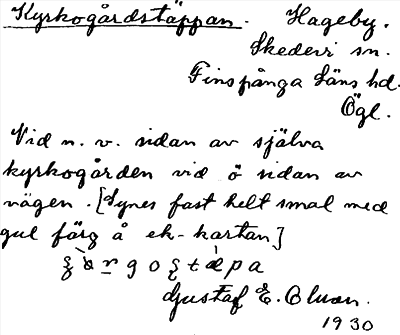 Kyrkogårdstäppan. Hageby.
Skedevi sn.
Finspånga Läns hd.
Ögl.
Vid n. v. sidan av själva
kyrkogården vid ö sidan av
vägen. [Synes fast helt smal med
gul färg å ek-kartan]
Gustaf E. Olson.
1930